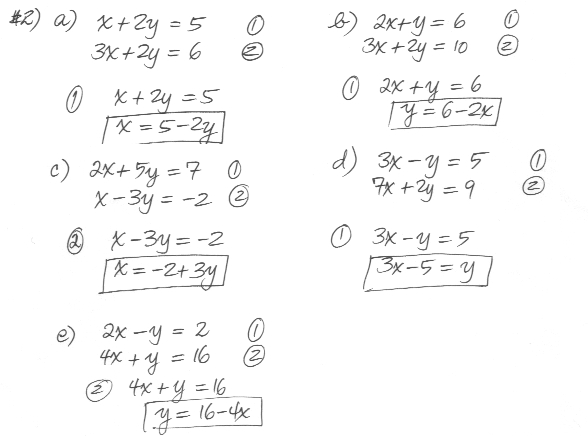 #2) a) x + 2y = 5 ①
3x + 2y = 6 ②
① x + 2y = 5
x = 5 - 2y
b) 2x + y = 6 ①
3x + 2y = 10 ②
① 2x + y = 6
y = 6 - 2x
c) 2x + 5y = 7 ①
x - 3y = -2 ②
② x - 3y = -2
x = -2 + 3y
d) 3x - y = 5 ①
7x + 2y = 9 ②
① 3x - y = 5
3x - 5 = y
e) 2x - y = 2 ①
4x + y = 16 ②
② 4x + y = 16
y = 16 - 4x